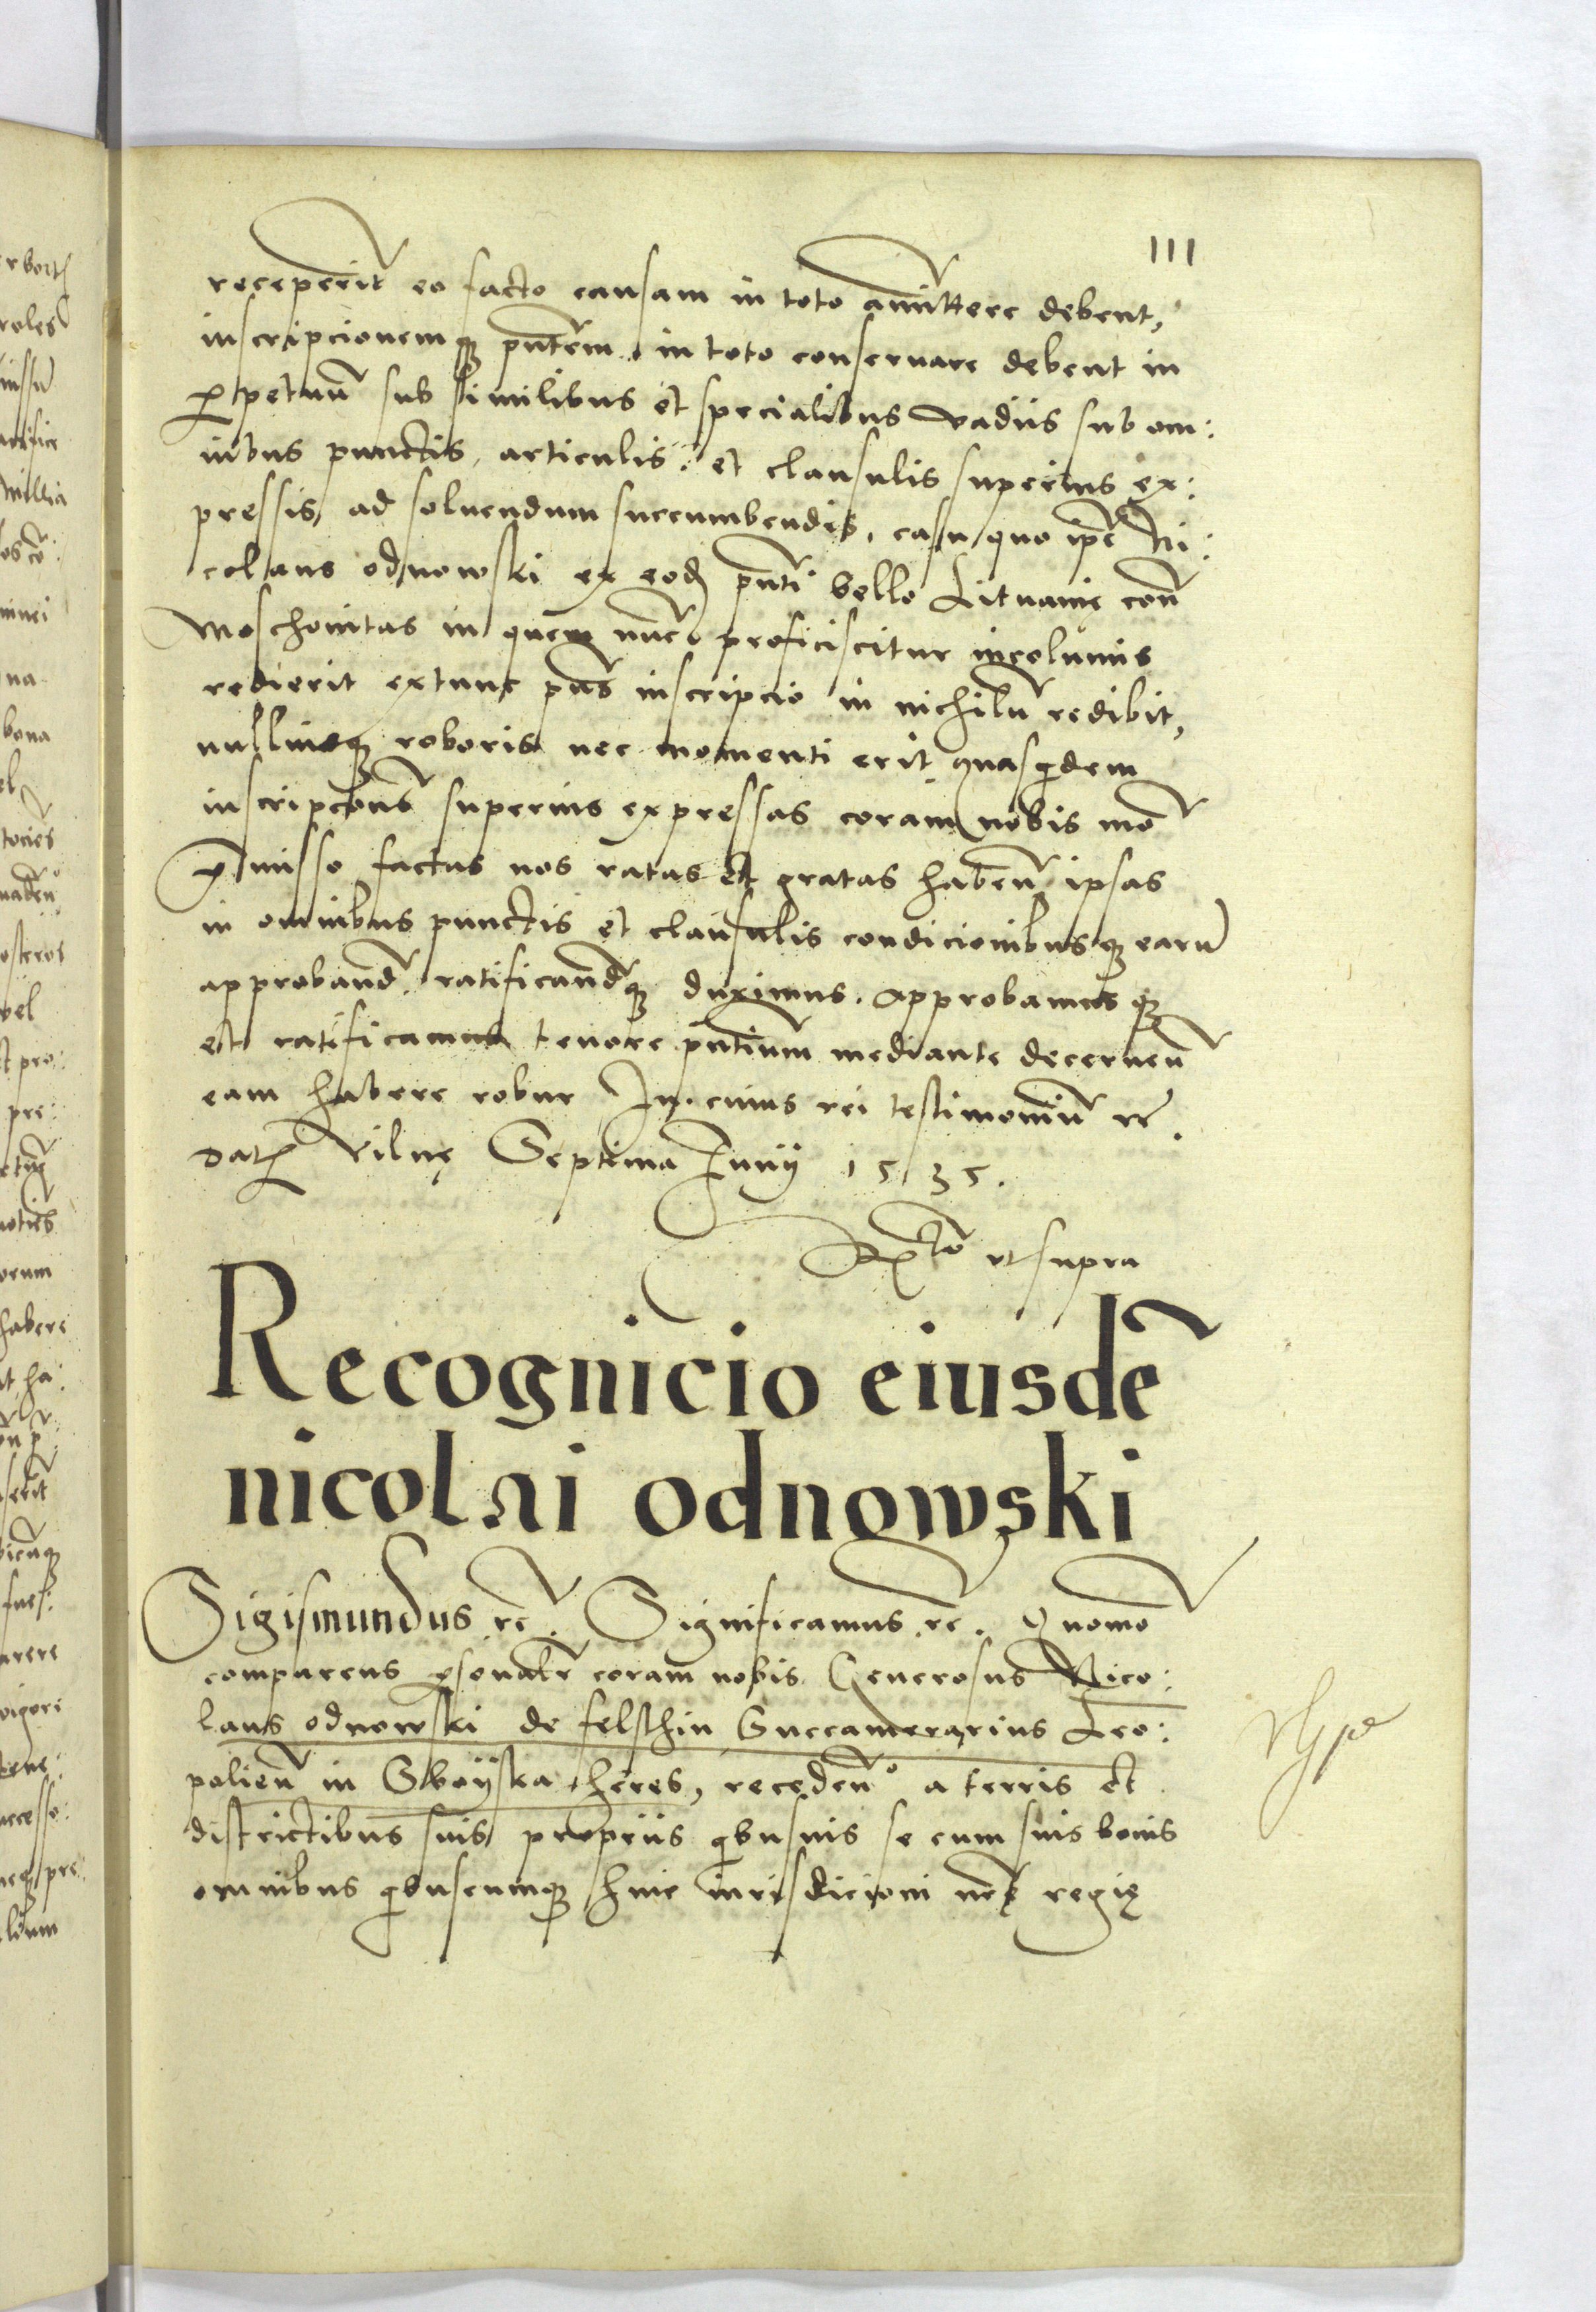 111
receperit eo facto causam in toto amittere debent,
inscripcionemq̃ pñtem in toto conservare debent in
ꝑpetuũ sub similibus et specialibus vadiis sub om:
nibus punctis, articulis, et clausulis superius ex:
pressis, ad solvendum succumbendis, casu quo ip̃e Ni:
colaus odnowski ex eodẽ pñti bello Lituanię con̄
Moschovitas in quem nunc proficiscitur incolumis
redierit extunc pñs inscripcio in nichilũ redibit,
nulliusqꝫ roboris nec momenti erit quasqdem
inscripcões superius expressas coram nobis mõ
p̃misso factas nos ratas et gratas habeñ ipsas
in omnibus punctis et clausulis condicionibusqꝫ earũ
approband̃ ratificand̃qꝫ duximus. Approbamusqꝫ
et ratificamus tenore pñtium mediante decerneñ
eam habere robur In cuius rei testimoniũ ꝛc̃.
Datꝭ Vilnę Septima Junij 1535.
R̃tõ ut supra
Recognicio eiusdẽ
nicolai odnowski
Sigismundus ꝛc̃. Significamus ꝛc. Quomõ
comparens ꝑsonalr̃ coram nobis Generosus Nico:
laus odnowski de felschin Succamerarius Leo:
polieñ in Swoÿska heres, recedeñ a terris et
districtibus suis propriis qbusvis se cum suis bonis
omnibus qbuscumqꝫ huic iurisdicioni nr̃ę regię